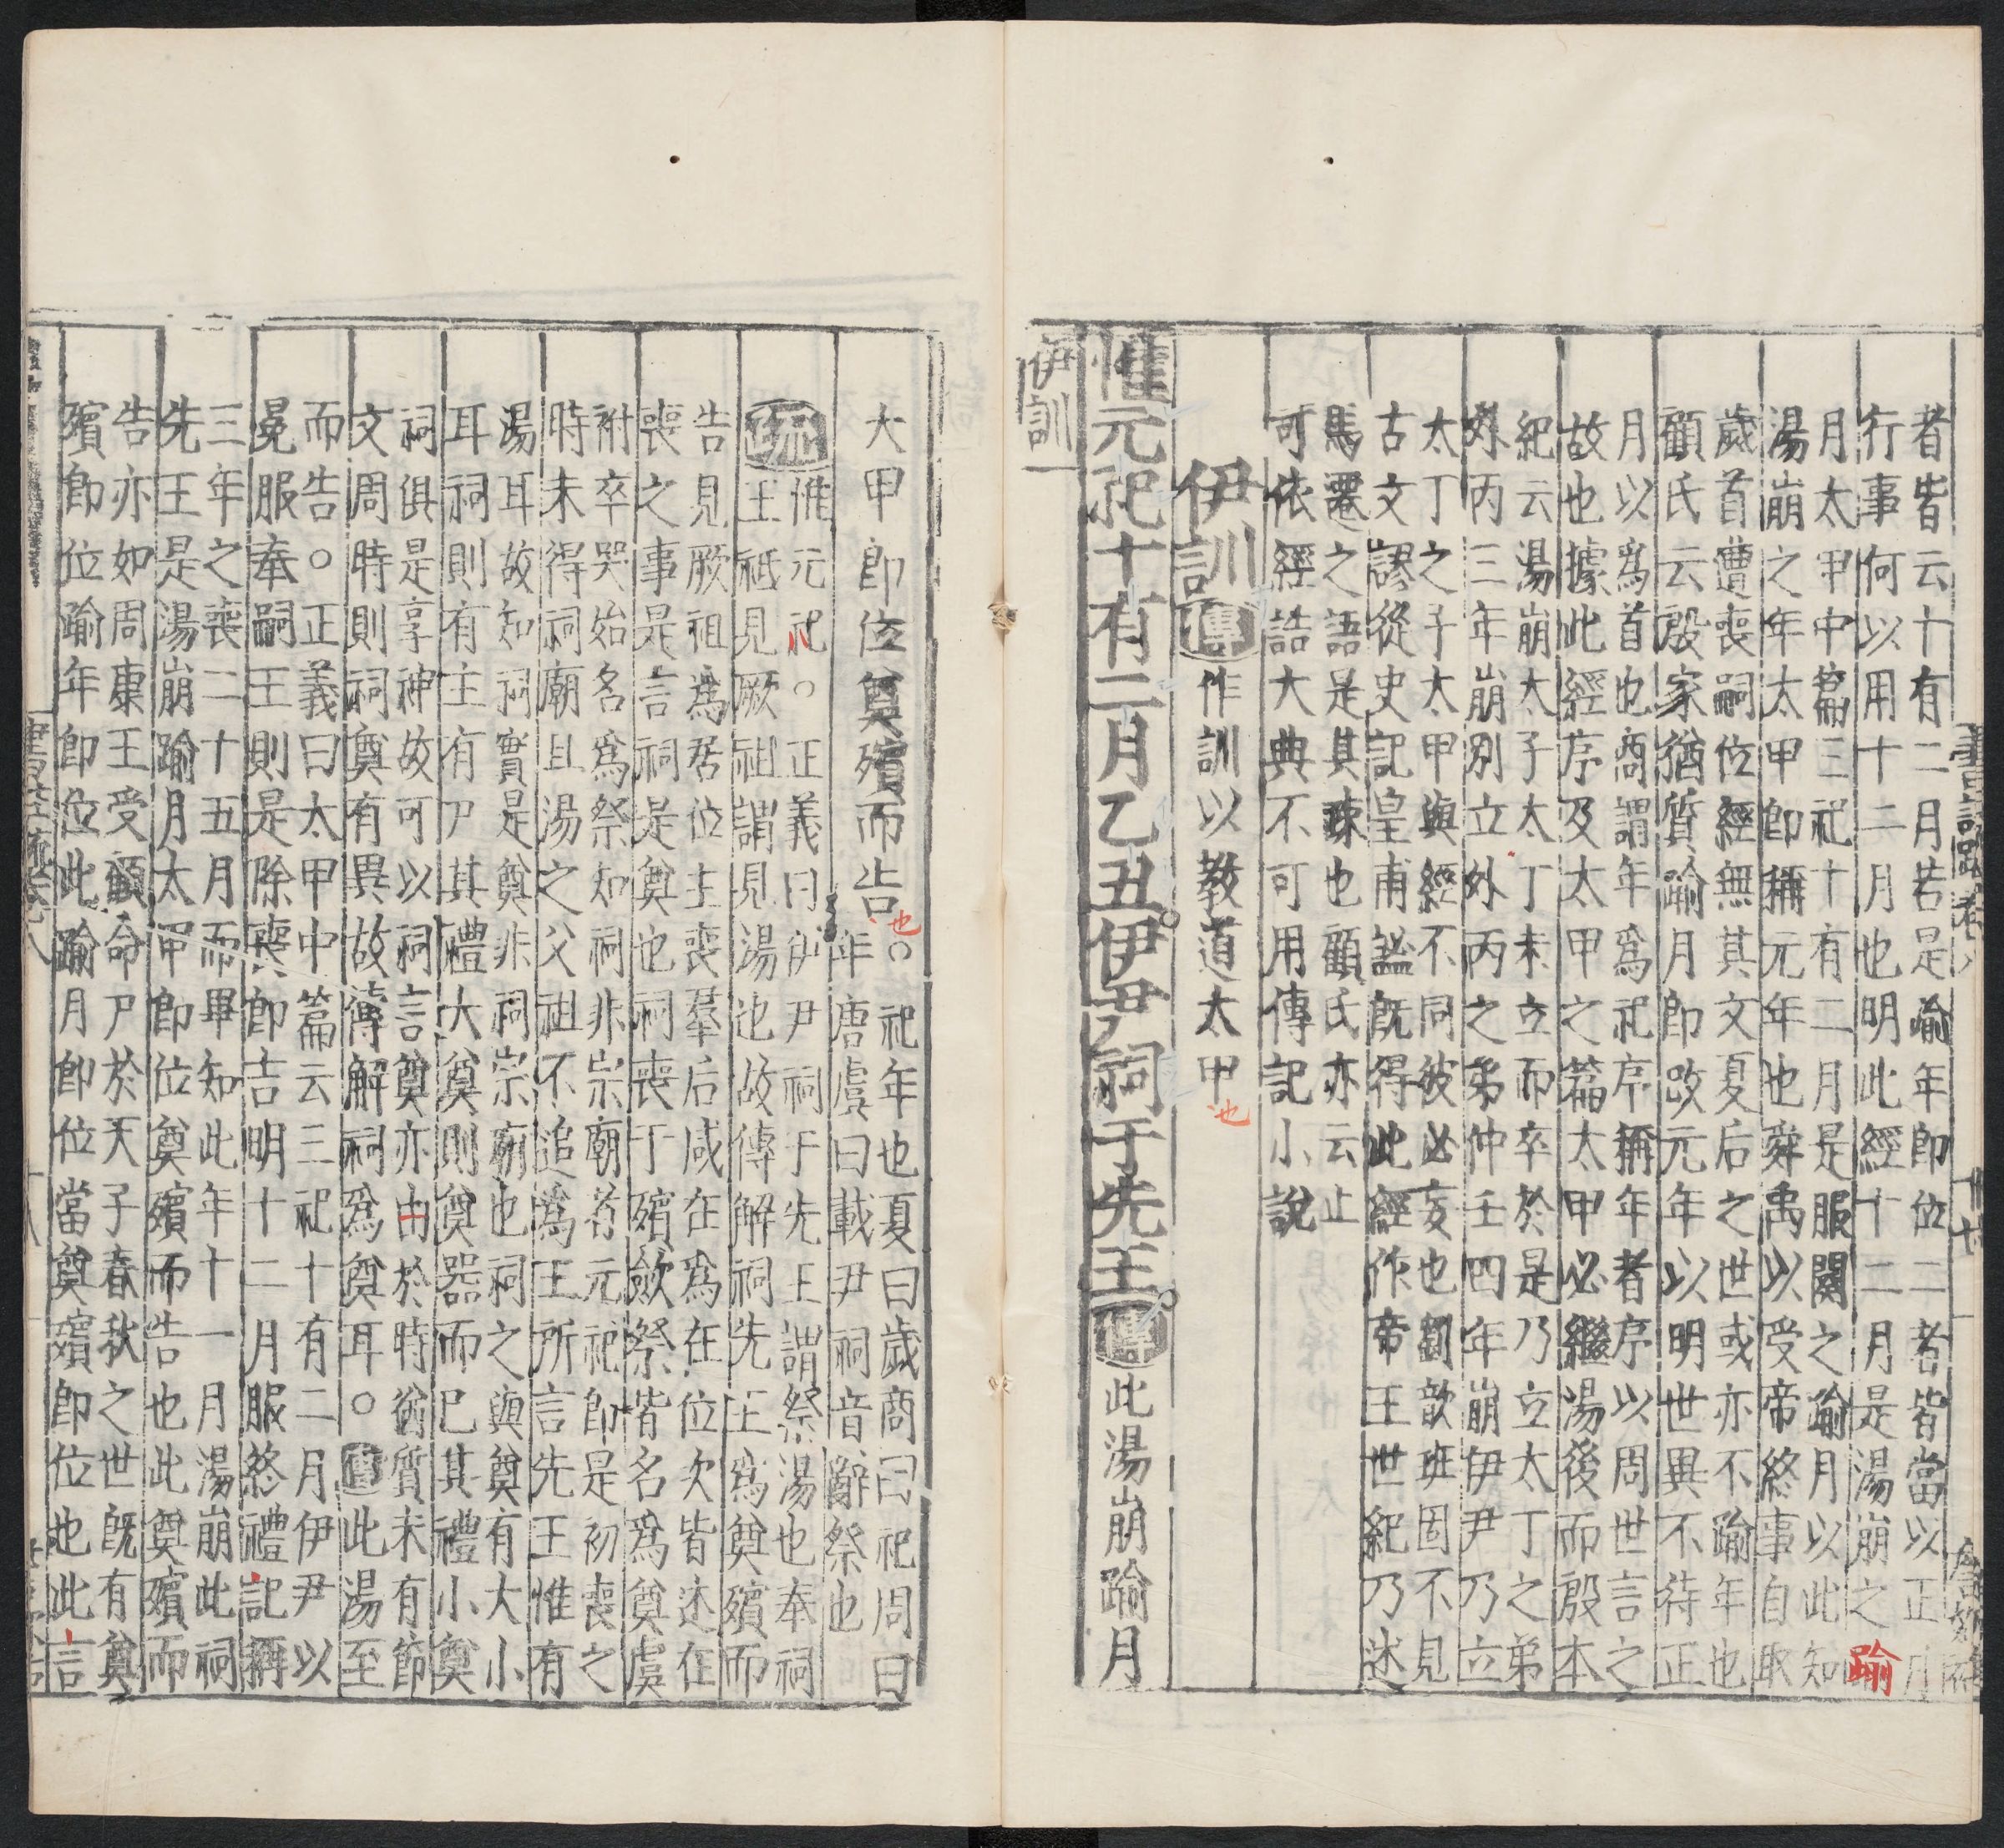 者皆云十有二月若是踰年即位二者皆當以正月
行事何以用十二月也明此經十二月是湯崩之踰
月太甲中篇三祀十有二月是服闋之踰月以此知
湯崩之年太甲即稱元年也舜禹以受帝終事自取
歲首遭喪嗣位經無其文夏后之世或亦不踰年也
顧氏云殷家猶質踰月即改元年以明世異不待正
月以爲首也商謂年爲祀序稱年者序以周世言之
故也據此經序及太甲之篇太甲必繼湯後而殷本
紀云湯崩太子太丁未立而卒於是乃立太丁之弟
外丙三年崩別立外丙之弟仲壬四年崩伊尹乃立
太丁之子太甲與經不同彼必妄也劉歆班固不見
古文謬從史記皇甫謐既得此經作帝王世紀乃述
馬遷之語是其疎也顧氏亦云止
可依經誥大典不可用傳記小說
伊訓傳作訓以教道太甲也
惟元祀十有二月乙丑伊尹祠于先王傳此湯崩踰月
伊訓
大甲即位奠殯而告也○祀年也夏曰歲商曰祀周曰
年唐虞曰載尹祠音辭祭也
疏惟元祀○正義曰伊尹祠于先王謂祭湯也奉祠
王祗見厥祖謂見湯也故傳解祠先王爲奠殯而
告見厥祖爲居位主喪羣后咸在爲在位次皆述在
喪之事是言祠是奠也祠喪于殯歛祭皆名爲奠虞
祔卒哭始名爲祭知祠非宗廟者元祀即是初喪之
時未得祠廟且湯之父祖不追爲王所言先王惟有
湯耳故知祠實是奠非祠宗廟也祠之與奠有大小
耳祠則有主有尸其禮大奠則奠器而已其禮小奠
祠俱是享神故可以祠言奠亦由於時猶質未有節
文周時則祠奠有異故傳解祠爲奠耳○傳此湯至
而告○正義曰太甲中篇云三祀十有二月伊尹以
冕服奉嗣王則是除喪即吉明十二月服終禮記稱
三年之喪二十五月而畢知此年十一月湯崩此祠
先王是湯崩踰月太甲即位奠殯而告也此奠殯而
告亦如周康王受顧命尸於天子春秋之世既有奠
殯即位踰年即位此踰月即位當奠殯即位也此言